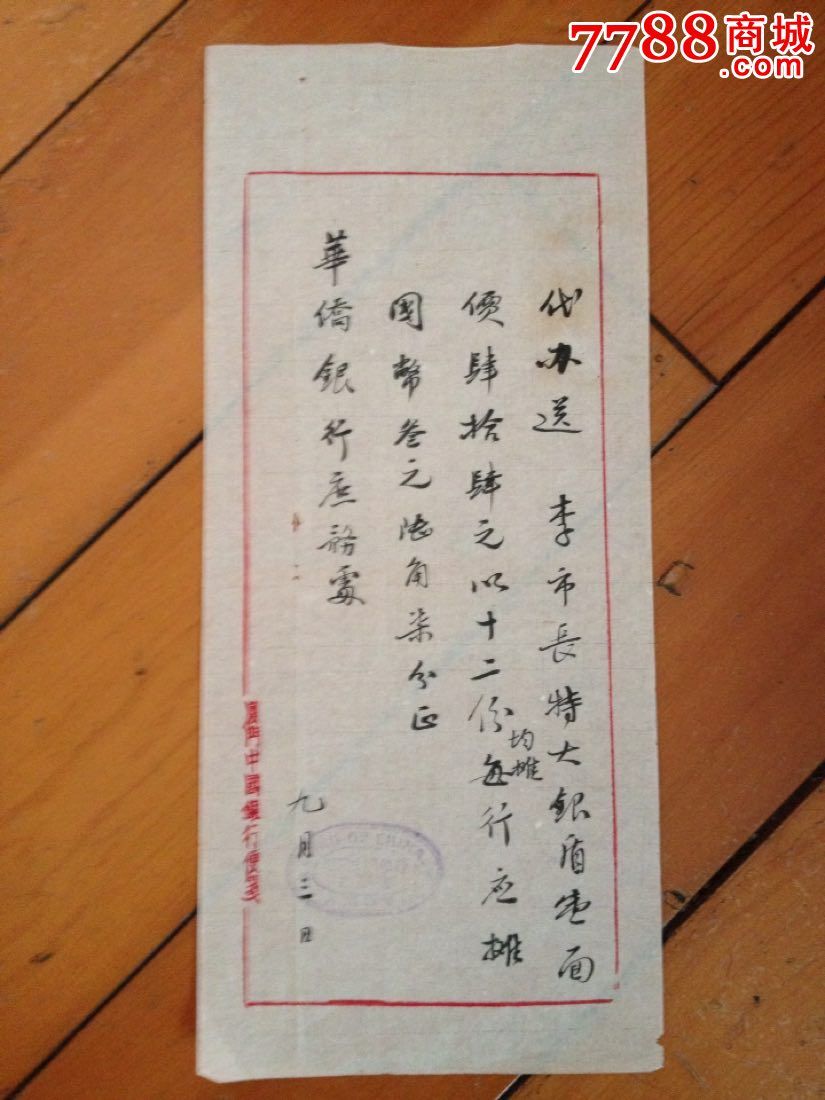 7788商城
.com
代办送 李市長特大銀盾壱面
價肆拾肆元以十二份均攤每行应攤
國幣叁元陆角柒分正
華僑銀行庶務處
九月三日
廈門中國銀行便箋